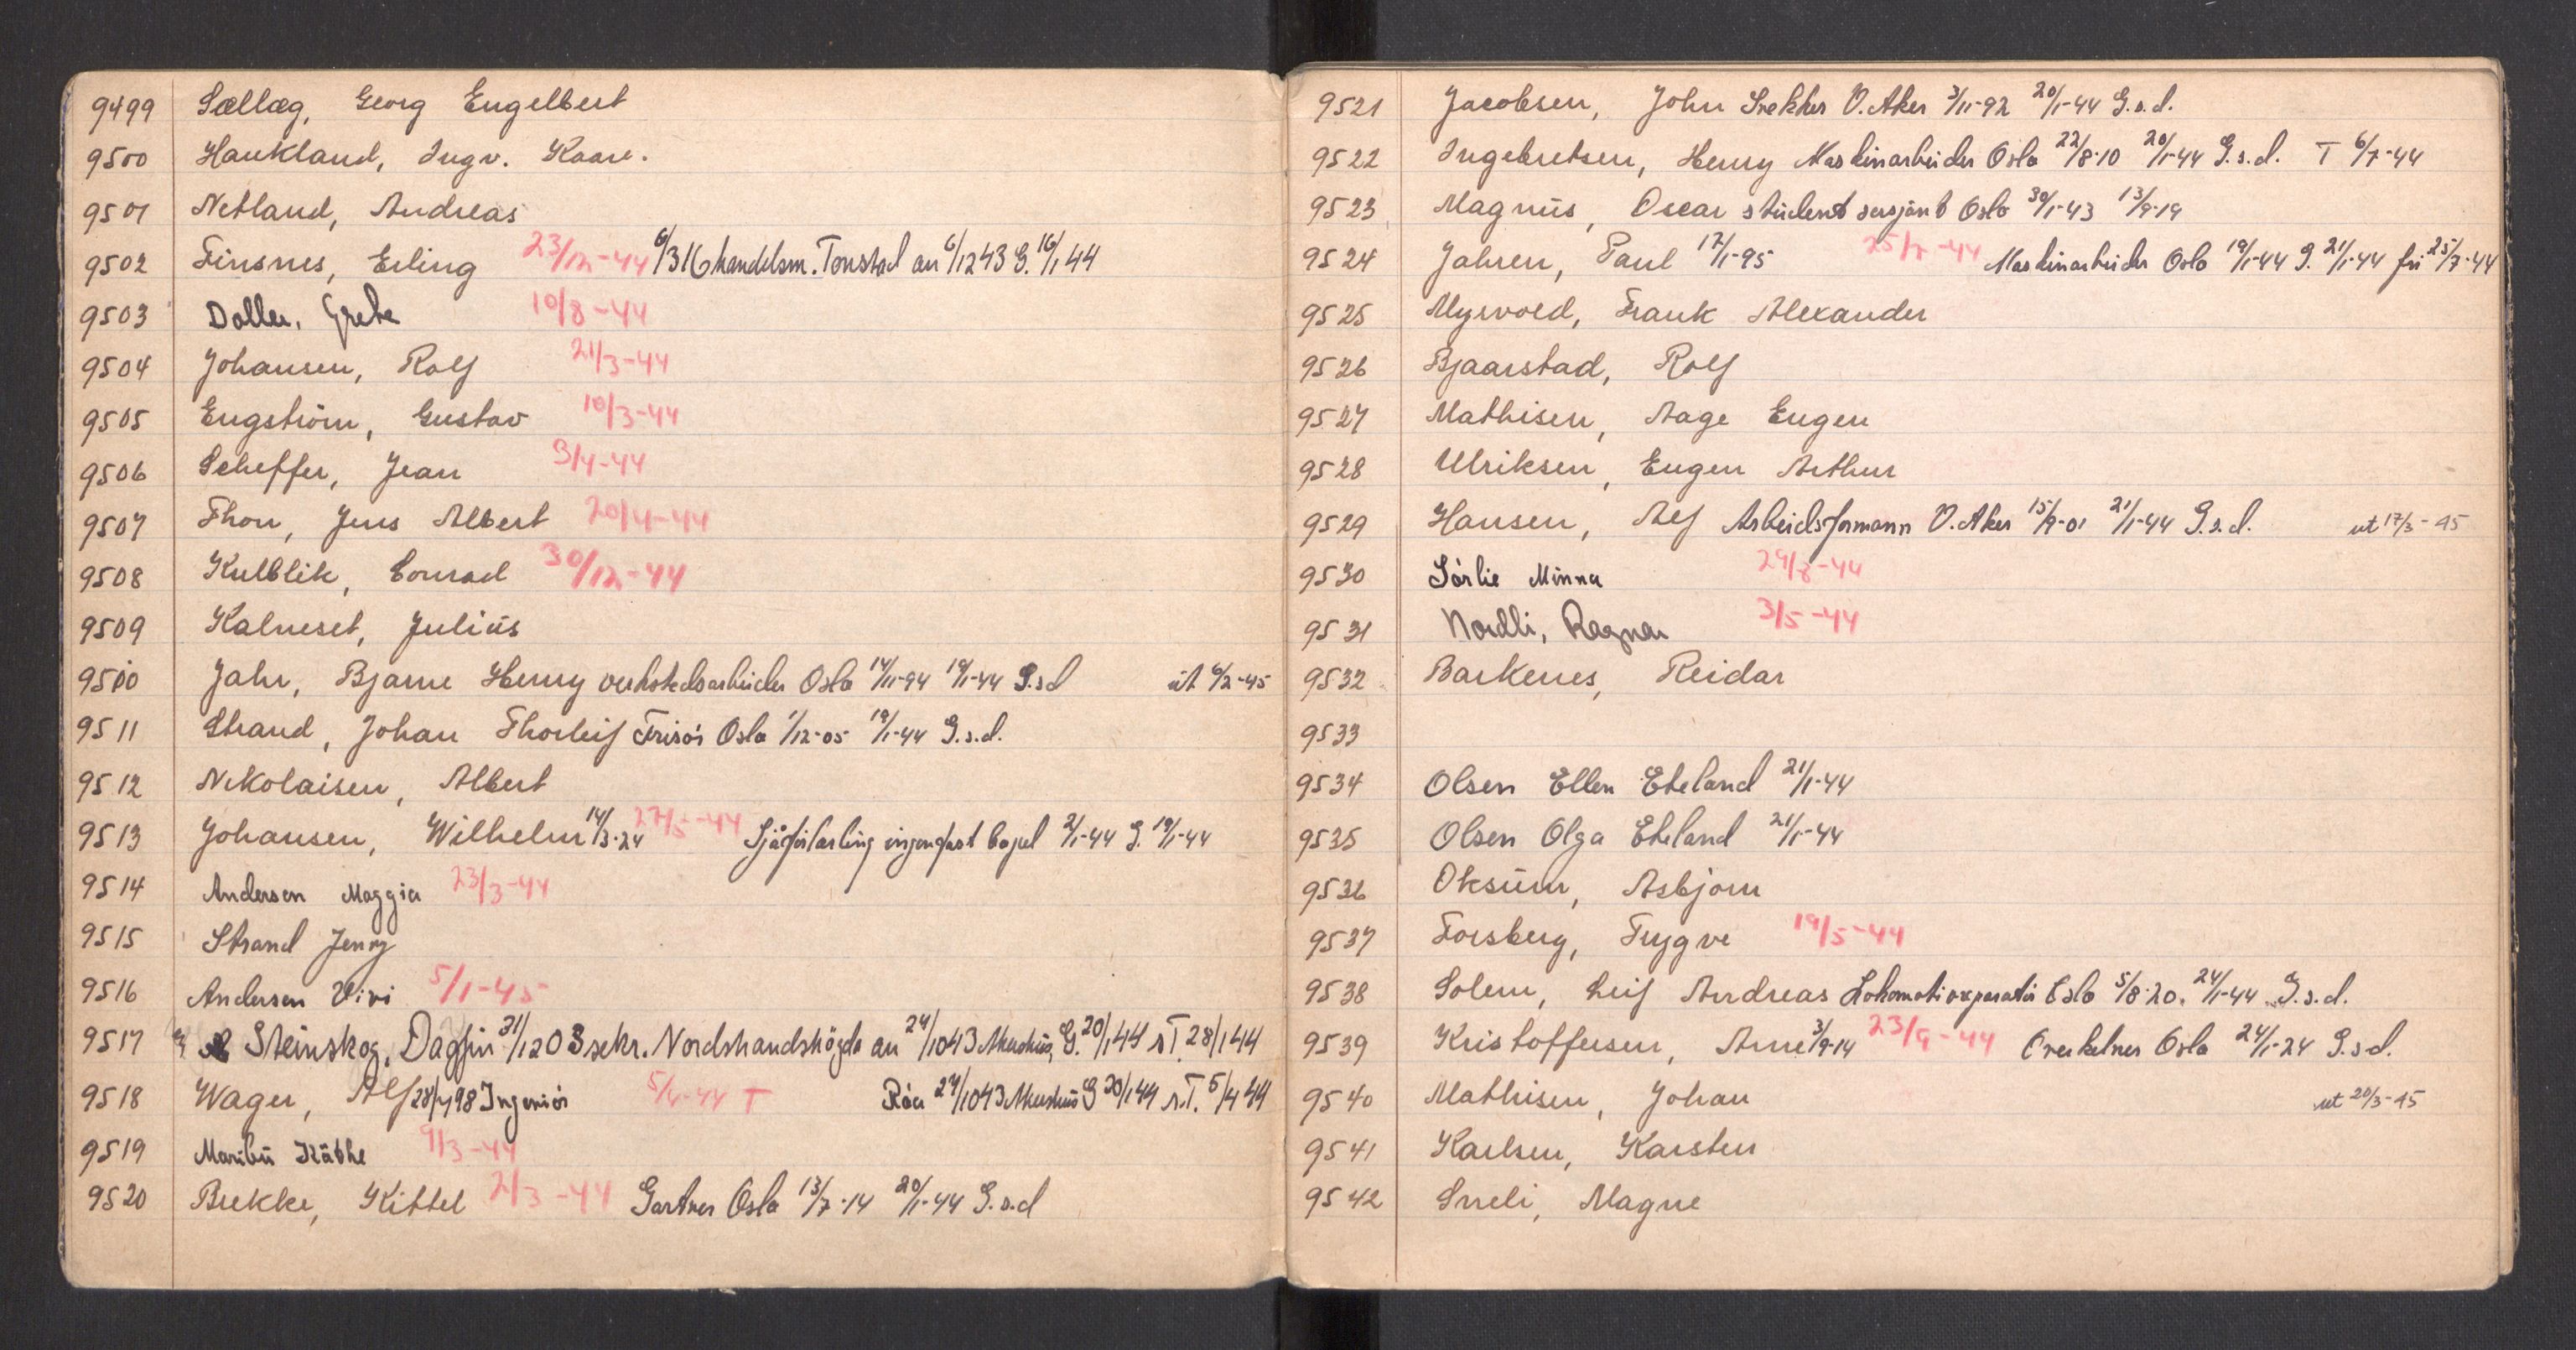 9499 Sællæg, Georg Engelbert
9500 Haukland, Ingv. Kaare.
9501 Netland, Andreas
9502 Finsnes, Erling 23/12-44 6/3 16 handelsm. Tonstad an 6/12 43 G. 16/1 44
9503 Doller, Grete 10/8-44
9504 Johansen, Rolf 21/3-44
9505 Engström, Gustav 10/3-44
9506 Scheffer, Jean 3/4-44
9507 Thon, Jens Albert 20/4-44
9508 Kulblik, Conrad 30/12-44
9509 Kalneset, Julius
9510 Jahr, Bjarne Henry verkstedsarbeider Oslo 14/11-94 19/1-44 G.s.d ut 6/2-45
9511 Strand, Johan Thorleif Frisör Oslo 1/12-05 19/1-44 G.s.d.
9512 Nikolaisen, Albert
9513 Johansen, Wilhelm 14/3-24 27/5-44 2/1-44 G. 19/1-44
9514 Andersen Maggia 23/3-44
9515 Strand Jenny
9516 Andersen Vivi 5/1-45
9517 Steinskog, Dagfin 31/12 03 sekr. Nordstrandshögda an 24/10 43 Akershus G. 20/1 44 s T. 28/1 44
9518 Wager, Alf 28/4 98 Ingeniör 5/4-44 T Röa 24/10 43 Akershus G 20/1 44 s.T. 5/4 44
9519 Maribu Käthe 9/3-44
9520 Bekke, Kittel 2/3-44 Gartner Oslo 13/7-14 20/1-44 G.s.d
9521 Jacobsen, John Snekker V. Aker 3/11-92 20/1-44 G.s.d.
9522 Ingebretsen, Henry Maskinarbeider Oslo 22/8-10 20/1-44 G.s.d. T 6/7-44
9523 Magnus, Oscar student sersjant Oslo 30/1-43 13/9-19
9524 Jahren, Paul 17/1-95 25/7-44 Maskinarbeider Oslo 19/1-44 G. 21/1-44 fri 25/7-44
9525 Myrvold, Frank Alexander
9526 Bjaarstad, Rolf
9527 Mathisen, Aage Eugen
9528 Ulriksen, Eugen Arthur
9529 Hansen, Alf Arbeidsformann V. Aker 15/9-01 21/1-44 G.s.d. ut 17/3-45
9530 Sörlie Minna 29/8-44
9531 Nordli, Ragnar 3/5-44
9532 Barkenes, Reidar
9533
9534 Olsen Ellen Eteland 21/1-44
9535 Olsen Olga Eteland 21/1-44
9536 Oksum, Asbjørn
9537 Forsberg, Trygve 19/5-44
9538 Solem, Leif Andreas Lokomotivreparatör Oslo 5/8-20. 24/1-44 G.s.d.
9539 Kristoffersen, Arne 3/9-14 23/9-44 Overkelner Oslo 24/1-24 G.s.d.
9540 Mathisen, Johan ut 20/3-45
9541 Karlsen, Karsten
9542 Sneli, Magne